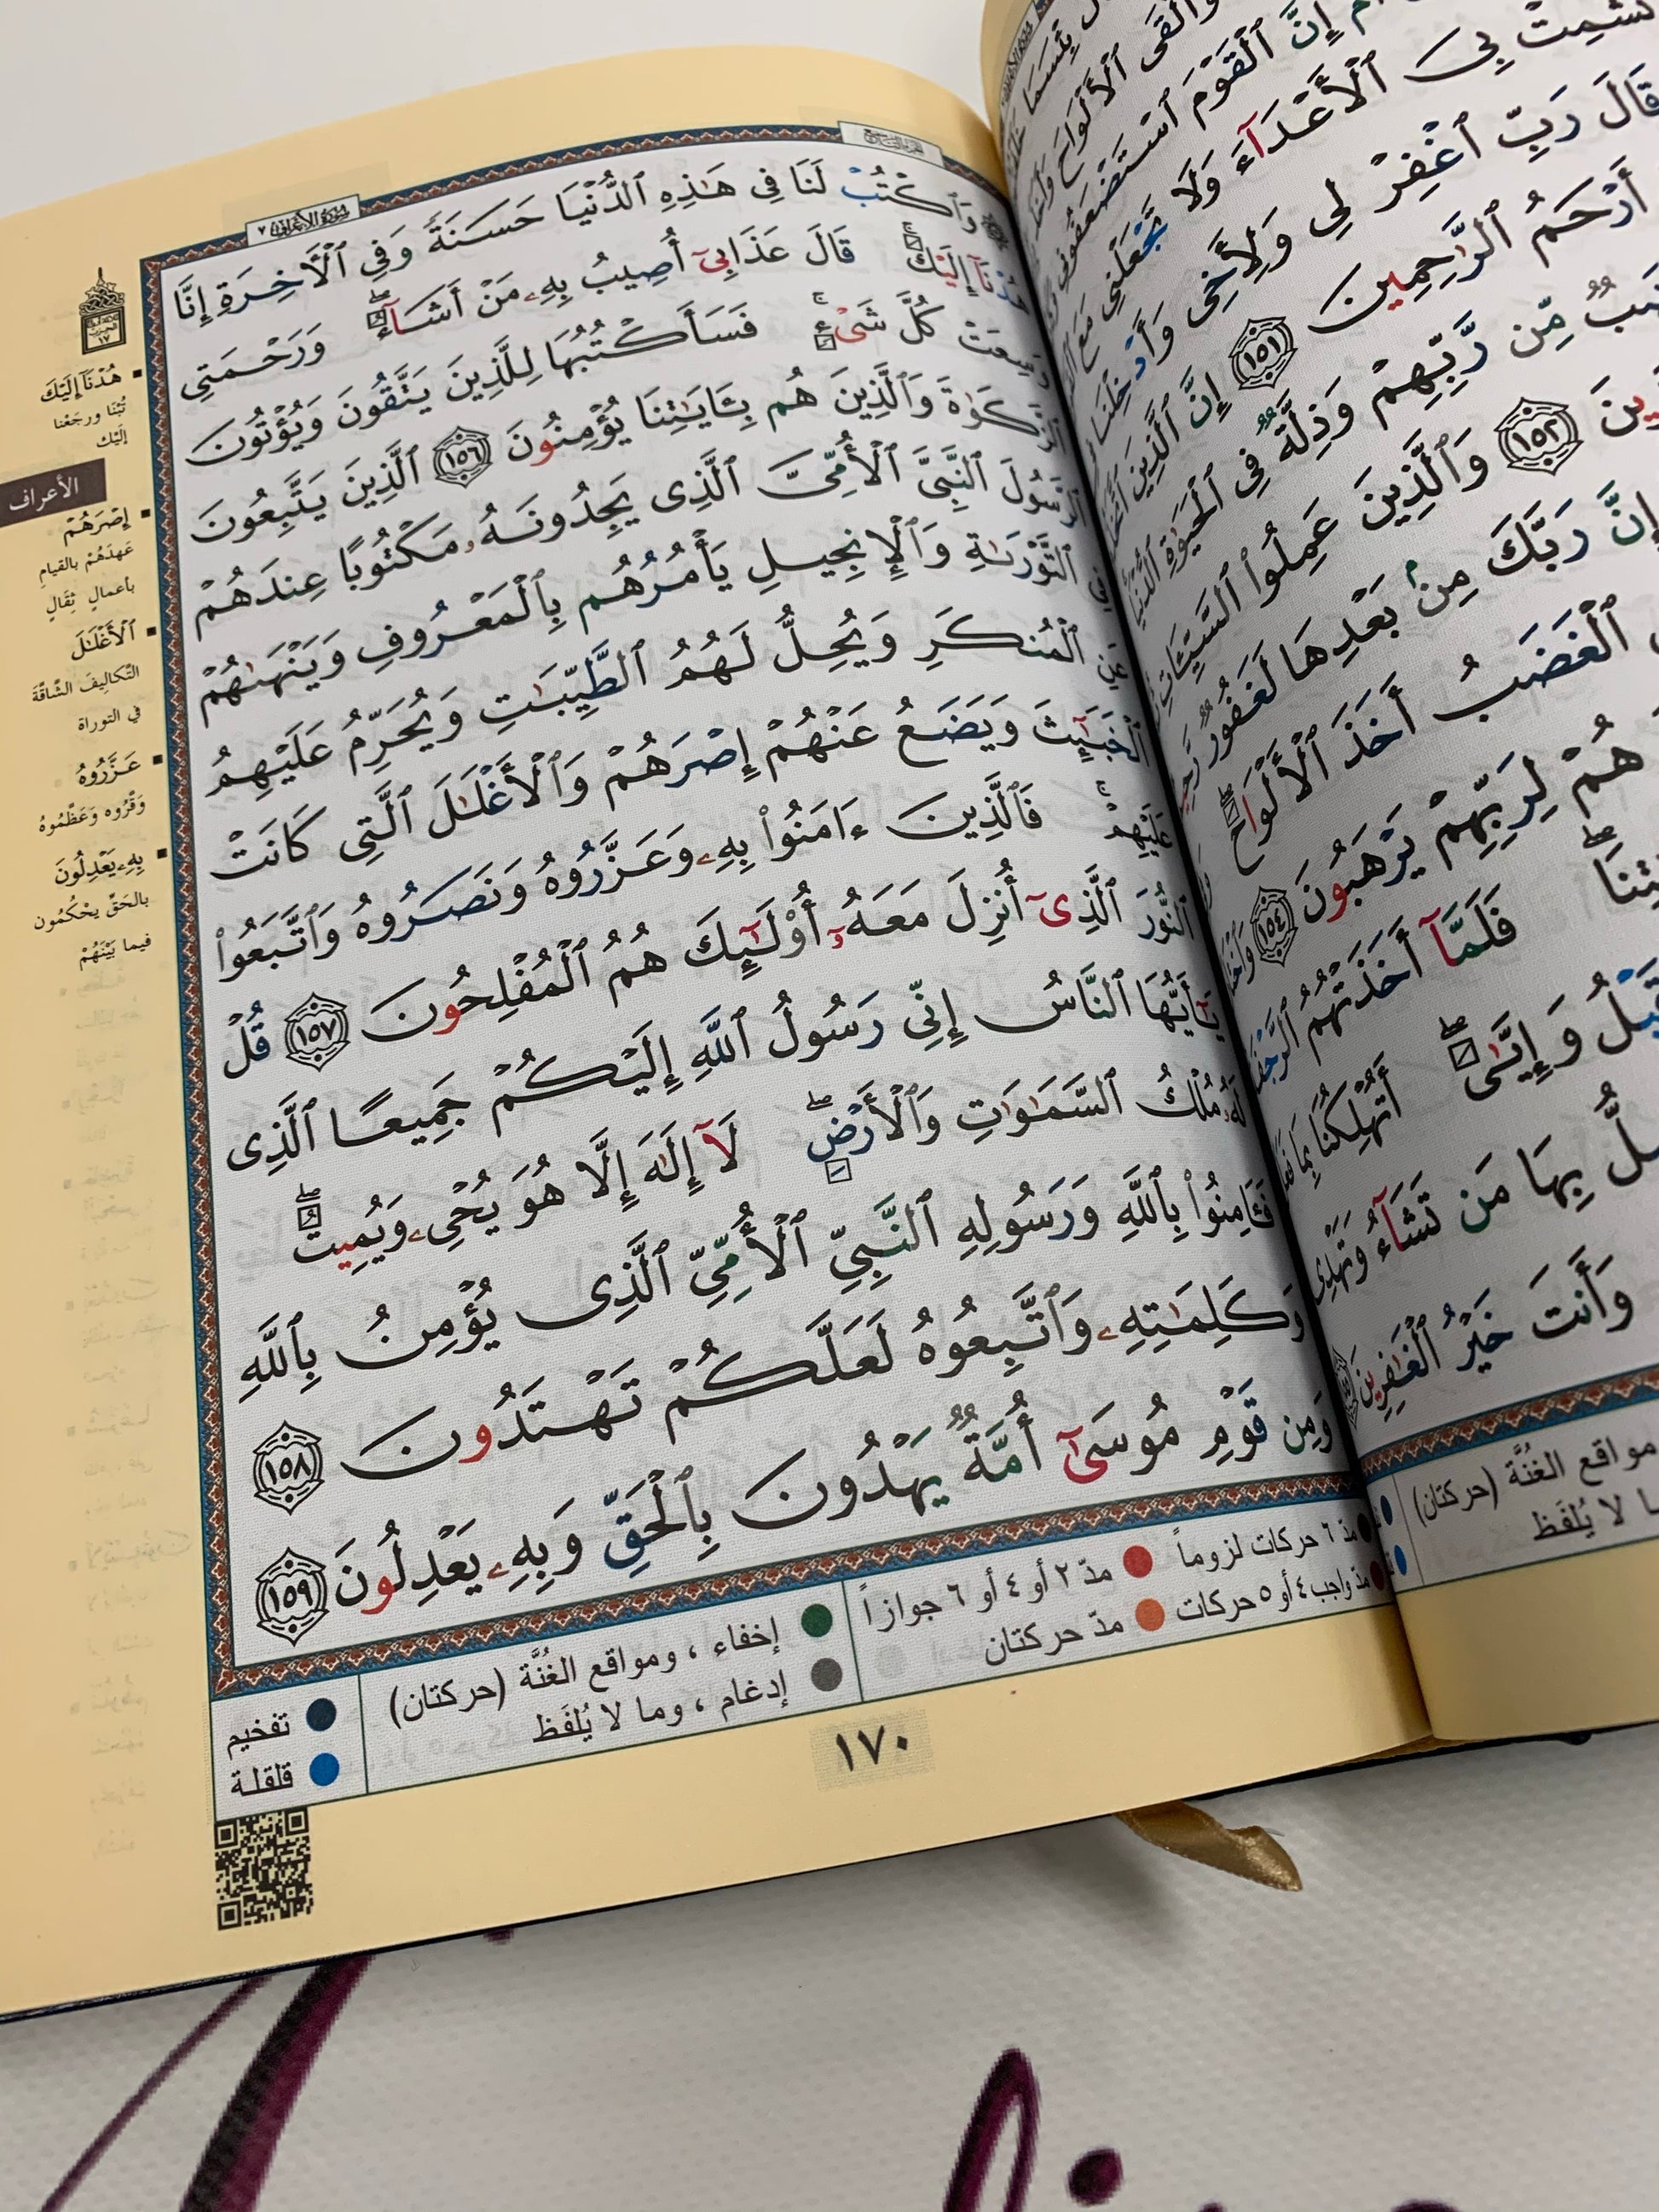 بِئْسَمَا
وَأَلْقَى ٱلْأَلْوَاحَ
إِنَّ ٱلْقَوْمَ ٱسْتَضْعَفُونِى
تُشْمِتْ بِىَ ٱلْأَعْدَآءَ وَلَا تَجْعَلْنِى مَعَ
قَالَ رَبِّ ٱغْفِرْ لِى وَلِأَخِى وَأَدْخِلْنَا
أَرْحَمُ ٱلرَّٰحِمِينَ ١٥١ إِنَّ ٱلَّذِينَ
مِّن رَّبِّهِمْ وَذِلَّةٌ فِى ٱلْحَيَوٰةِ ٱلدُّنْيَا
١٥٢ وَٱلَّذِينَ عَمِلُوا۟ ٱلسَّيِّـَٔاتِ
إِنَّ رَبَّكَ مِنۢ بَعْدِهَا لَغَفُورٌ رَّحِيمٌ
ٱلْغَضَبُ أَخَذَ ٱلْأَلْوَاحَ ۖ
هُمْ لِرَبِّهِمْ يَرْهَبُونَ ١٥٤
فَلَمَّآ أَخَذَتْهُمُ
قَبْلُ وَإِيَّـٰىَ ۖ أَتُهْلِكُنَا بِمَا
بِهَا مَن تَشَآءُ وَتَهْدِى
وَأَنتَ خَيْرُ ٱلْغَـٰفِرِينَ
مواقع الغُنَّة (حركتان)
ما لا يُلفَظ
سورة الأعراف ٧
۞ وَٱكْتُبْ لَنَا فِى هَـٰذِهِ ٱلدُّنْيَا حَسَنَةً وَفِى ٱلْـَٔاخِرَةِ إِنَّا
هُدْنَآ إِلَيْكَ ۚ قَالَ عَذَابِىٓ أُصِيبُ بِهِۦ مَنْ أَشَآءُ ۖ وَرَحْمَتِى
وَسِعَتْ كُلَّ شَىْءٍ ۚ فَسَأَكْتُبُهَا لِلَّذِينَ يَتَّقُونَ وَيُؤْتُونَ
ٱلزَّكَوٰةَ وَٱلَّذِينَ هُم بِـَٔايَـٰتِنَا يُؤْمِنُونَ ١٥٦ ٱلَّذِينَ يَتَّبِعُونَ
ٱلرَّسُولَ ٱلنَّبِىَّ ٱلْأُمِّىَّ ٱلَّذِى يَجِدُونَهُۥ مَكْتُوبًا عِندَهُمْ
فِى ٱلتَّوْرَىٰةِ وَٱلْإِنجِيلِ يَأْمُرُهُم بِٱلْمَعْرُوفِ وَيَنْهَىٰهُمْ
عَنِ ٱلْمُنكَرِ وَيُحِلُّ لَهُمُ ٱلطَّيِّبَـٰتِ وَيُحَرِّمُ عَلَيْهِمُ
ٱلْخَبَـٰٓئِثَ وَيَضَعُ عَنْهُمْ إِصْرَهُمْ وَٱلْأَغْلَـٰلَ ٱلَّتِى كَانَتْ
عَلَيْهِمْ ۚ فَٱلَّذِينَ ءَامَنُوا۟ بِهِۦ وَعَزَّرُوهُ وَنَصَرُوهُ وَٱتَّبَعُوا۟
ٱلنُّورَ ٱلَّذِىٓ أُنزِلَ مَعَهُۥٓ أُو۟لَـٰٓئِكَ هُمُ ٱلْمُفْلِحُونَ ١٥٧ قُلْ
يَـٰٓأَيُّهَا ٱلنَّاسُ إِنِّى رَسُولُ ٱللَّهِ إِلَيْكُمْ جَمِيعًا ٱلَّذِى
لَهُۥ مُلْكُ ٱلسَّمَـٰوَٰتِ وَٱلْأَرْضِ ۖ لَآ إِلَـٰهَ إِلَّا هُوَ يُحْىِۦ وَيُمِيتُ ۖ
فَـَٔامِنُوا۟ بِٱللَّهِ وَرَسُولِهِ ٱلنَّبِىِّ ٱلْأُمِّىِّ ٱلَّذِى يُؤْمِنُ بِٱللَّهِ
وَكَلِمَـٰتِهِۦ وَٱتَّبِعُوهُ لَعَلَّكُمْ تَهْتَدُونَ ١٥٨
وَمِن قَوْمِ مُوسَىٰٓ أُمَّةٌ يَهْدُونَ بِٱلْحَقِّ وَبِهِۦ يَعْدِلُونَ ١٥٩
هُدْنَآ إِلَيْكَ
تُبْنَا ورجَعْنا
إليْك
الأعراف
إِصْرَهُمْ
عَهدَهُمْ بالقيامِ
بأعمالٍ ثِقَالٍ
ٱلْأَغْلَـٰلَ
التّكاليفَ الشّاقّةَ
في التوراة
عَزَّرُوهُ
وَقّروه وَعَظّمُوهُ
بِهِۦ يَعْدِلُونَ
بالحَقِّ يحْكُمُون
فيما بَيْنَهُمْ
مدّ ٦ حركات لزوماً
مدّ ٢ أو ٤ أو ٦ جوازاً
مدّ واجب ٤ أو ٥ حركات
مدّ حركتان
إخفاء ، ومواقع الغُنَّة (حركتان)
إدغام ، وما لا يُلفَظ
تفخيم
قلقلة
١٧٠